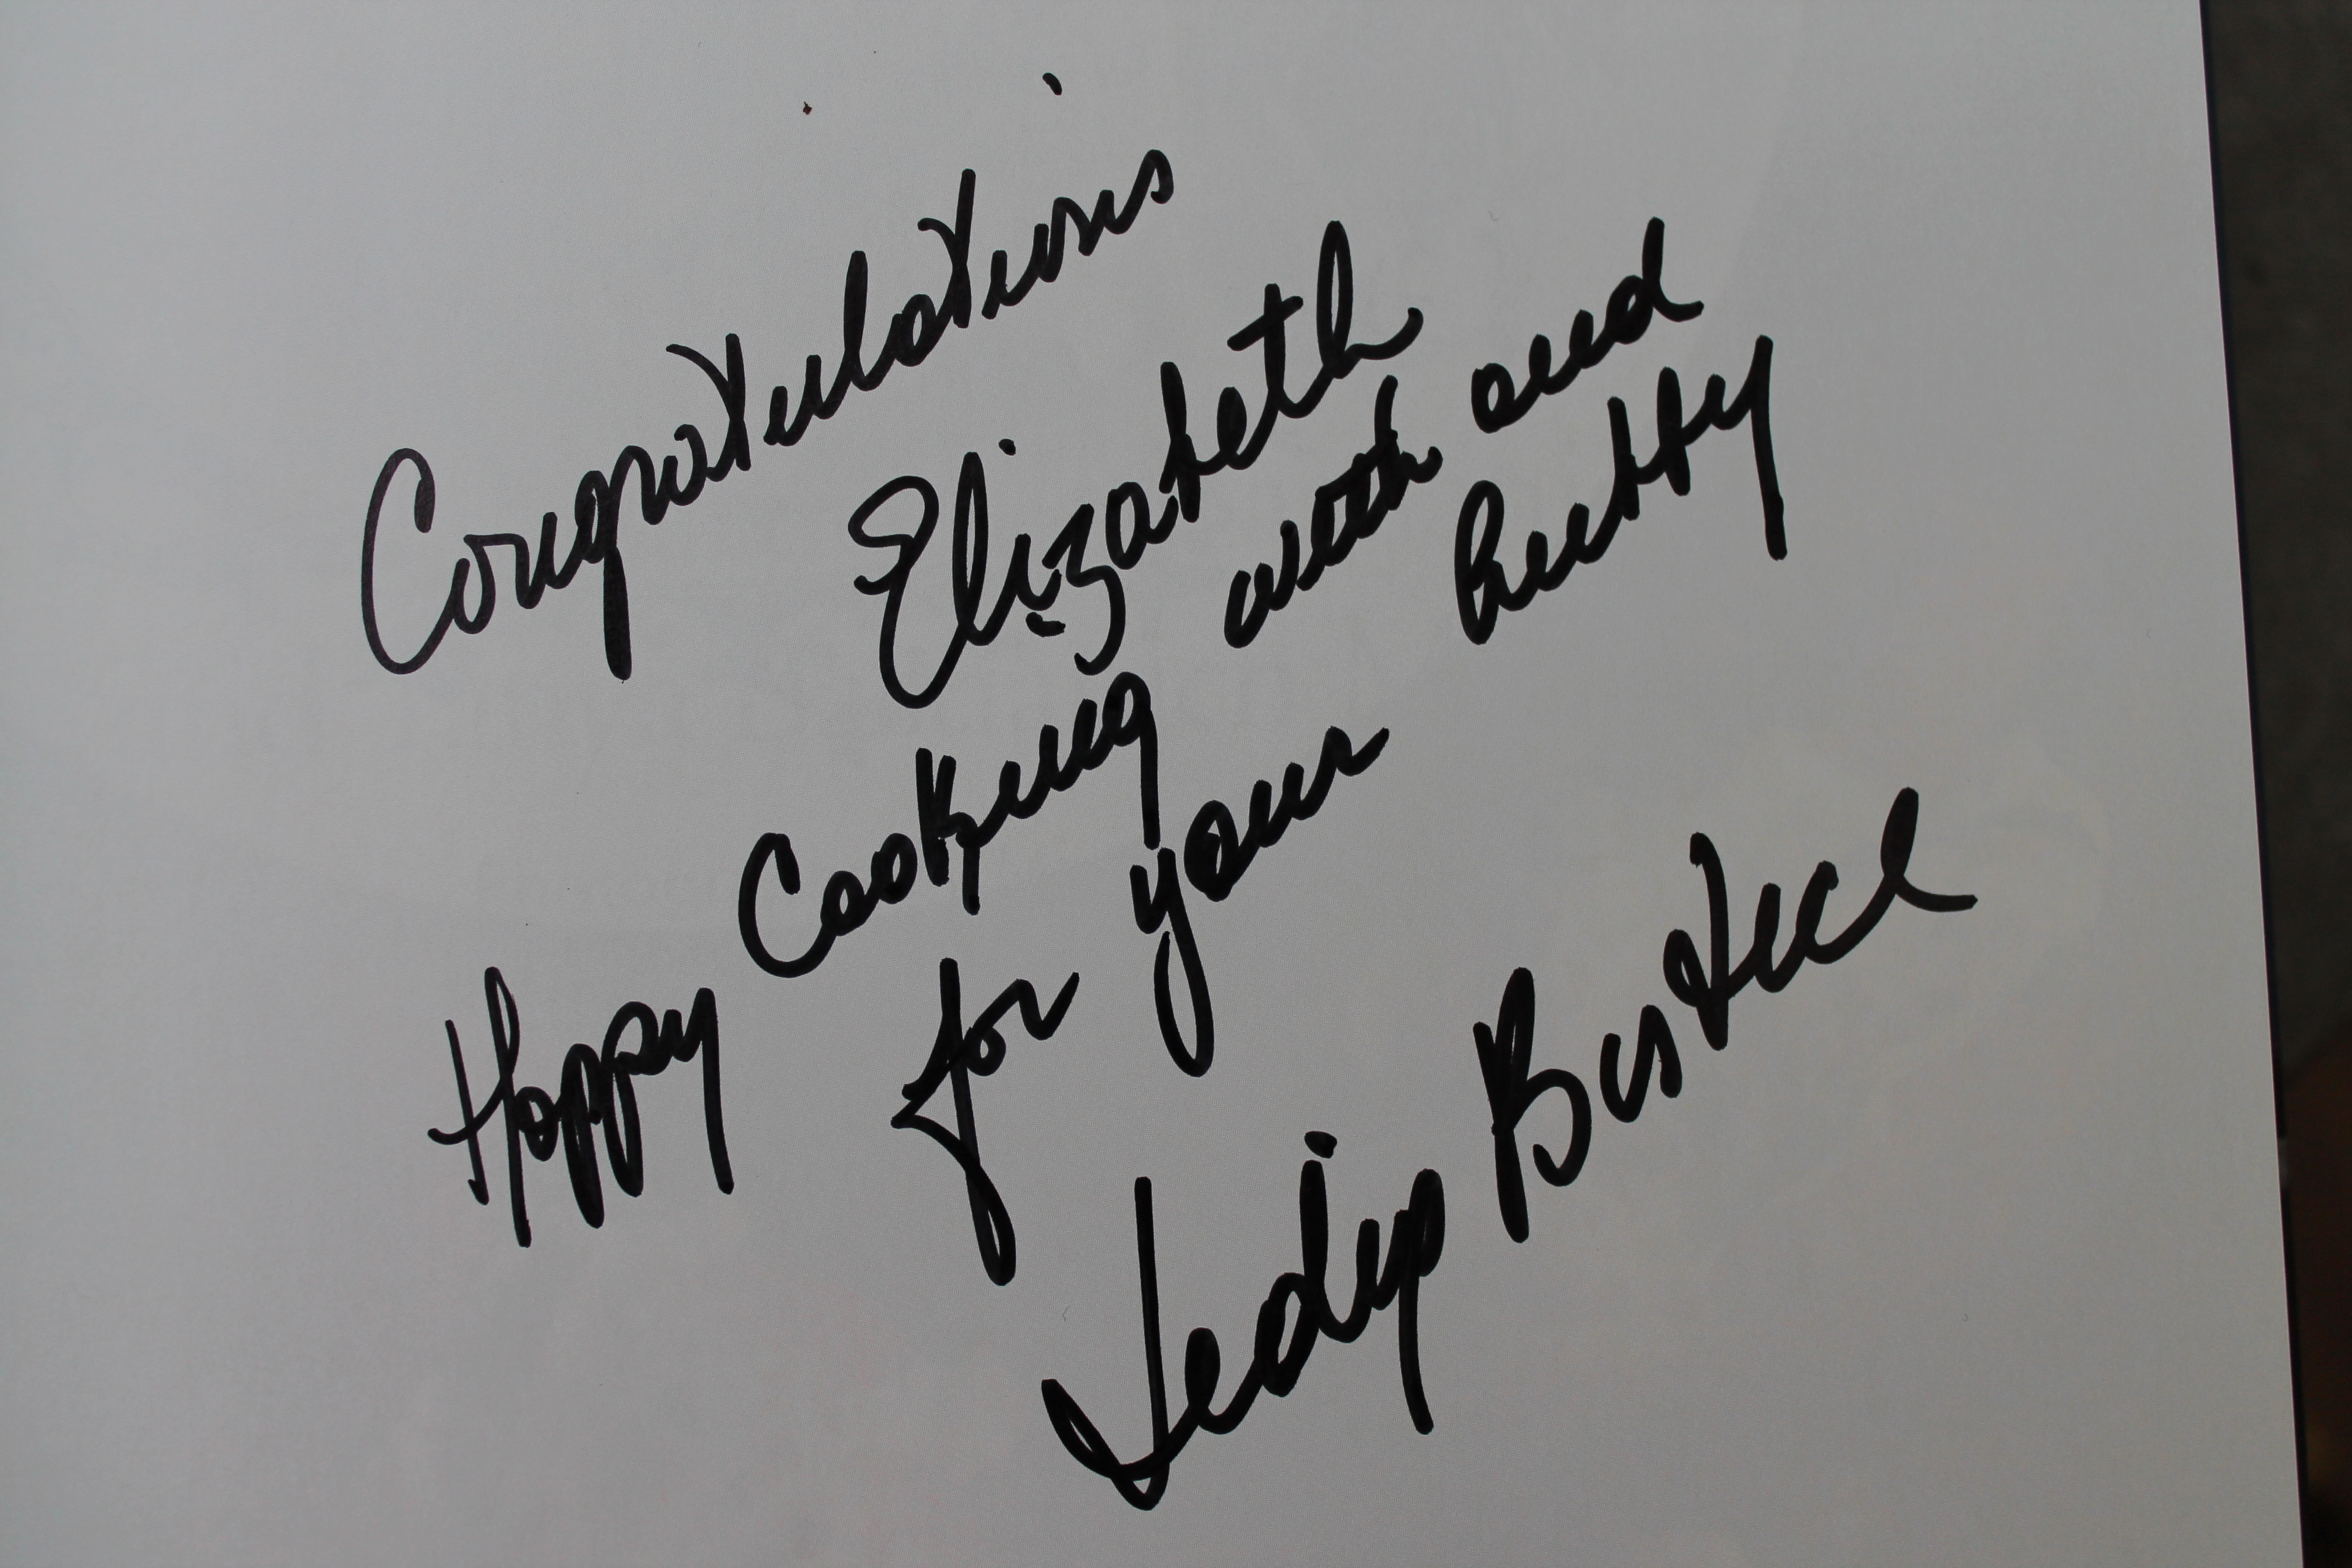 Congratulations
Elizabeth
Happy Cooking with and
for your hubby